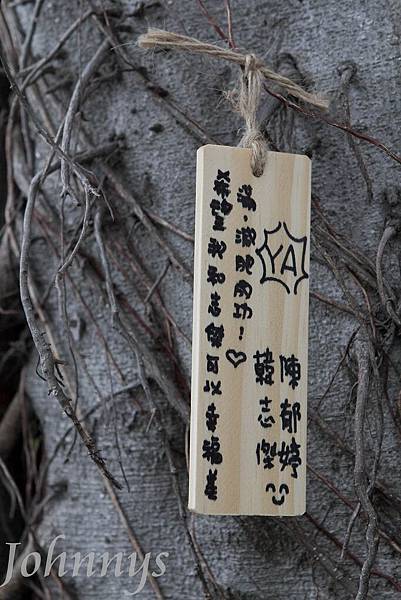 希望我和志傑可以幸福美
滿，減肥成功！♡
YA
陳郁婷
韓志傑
Johnnys